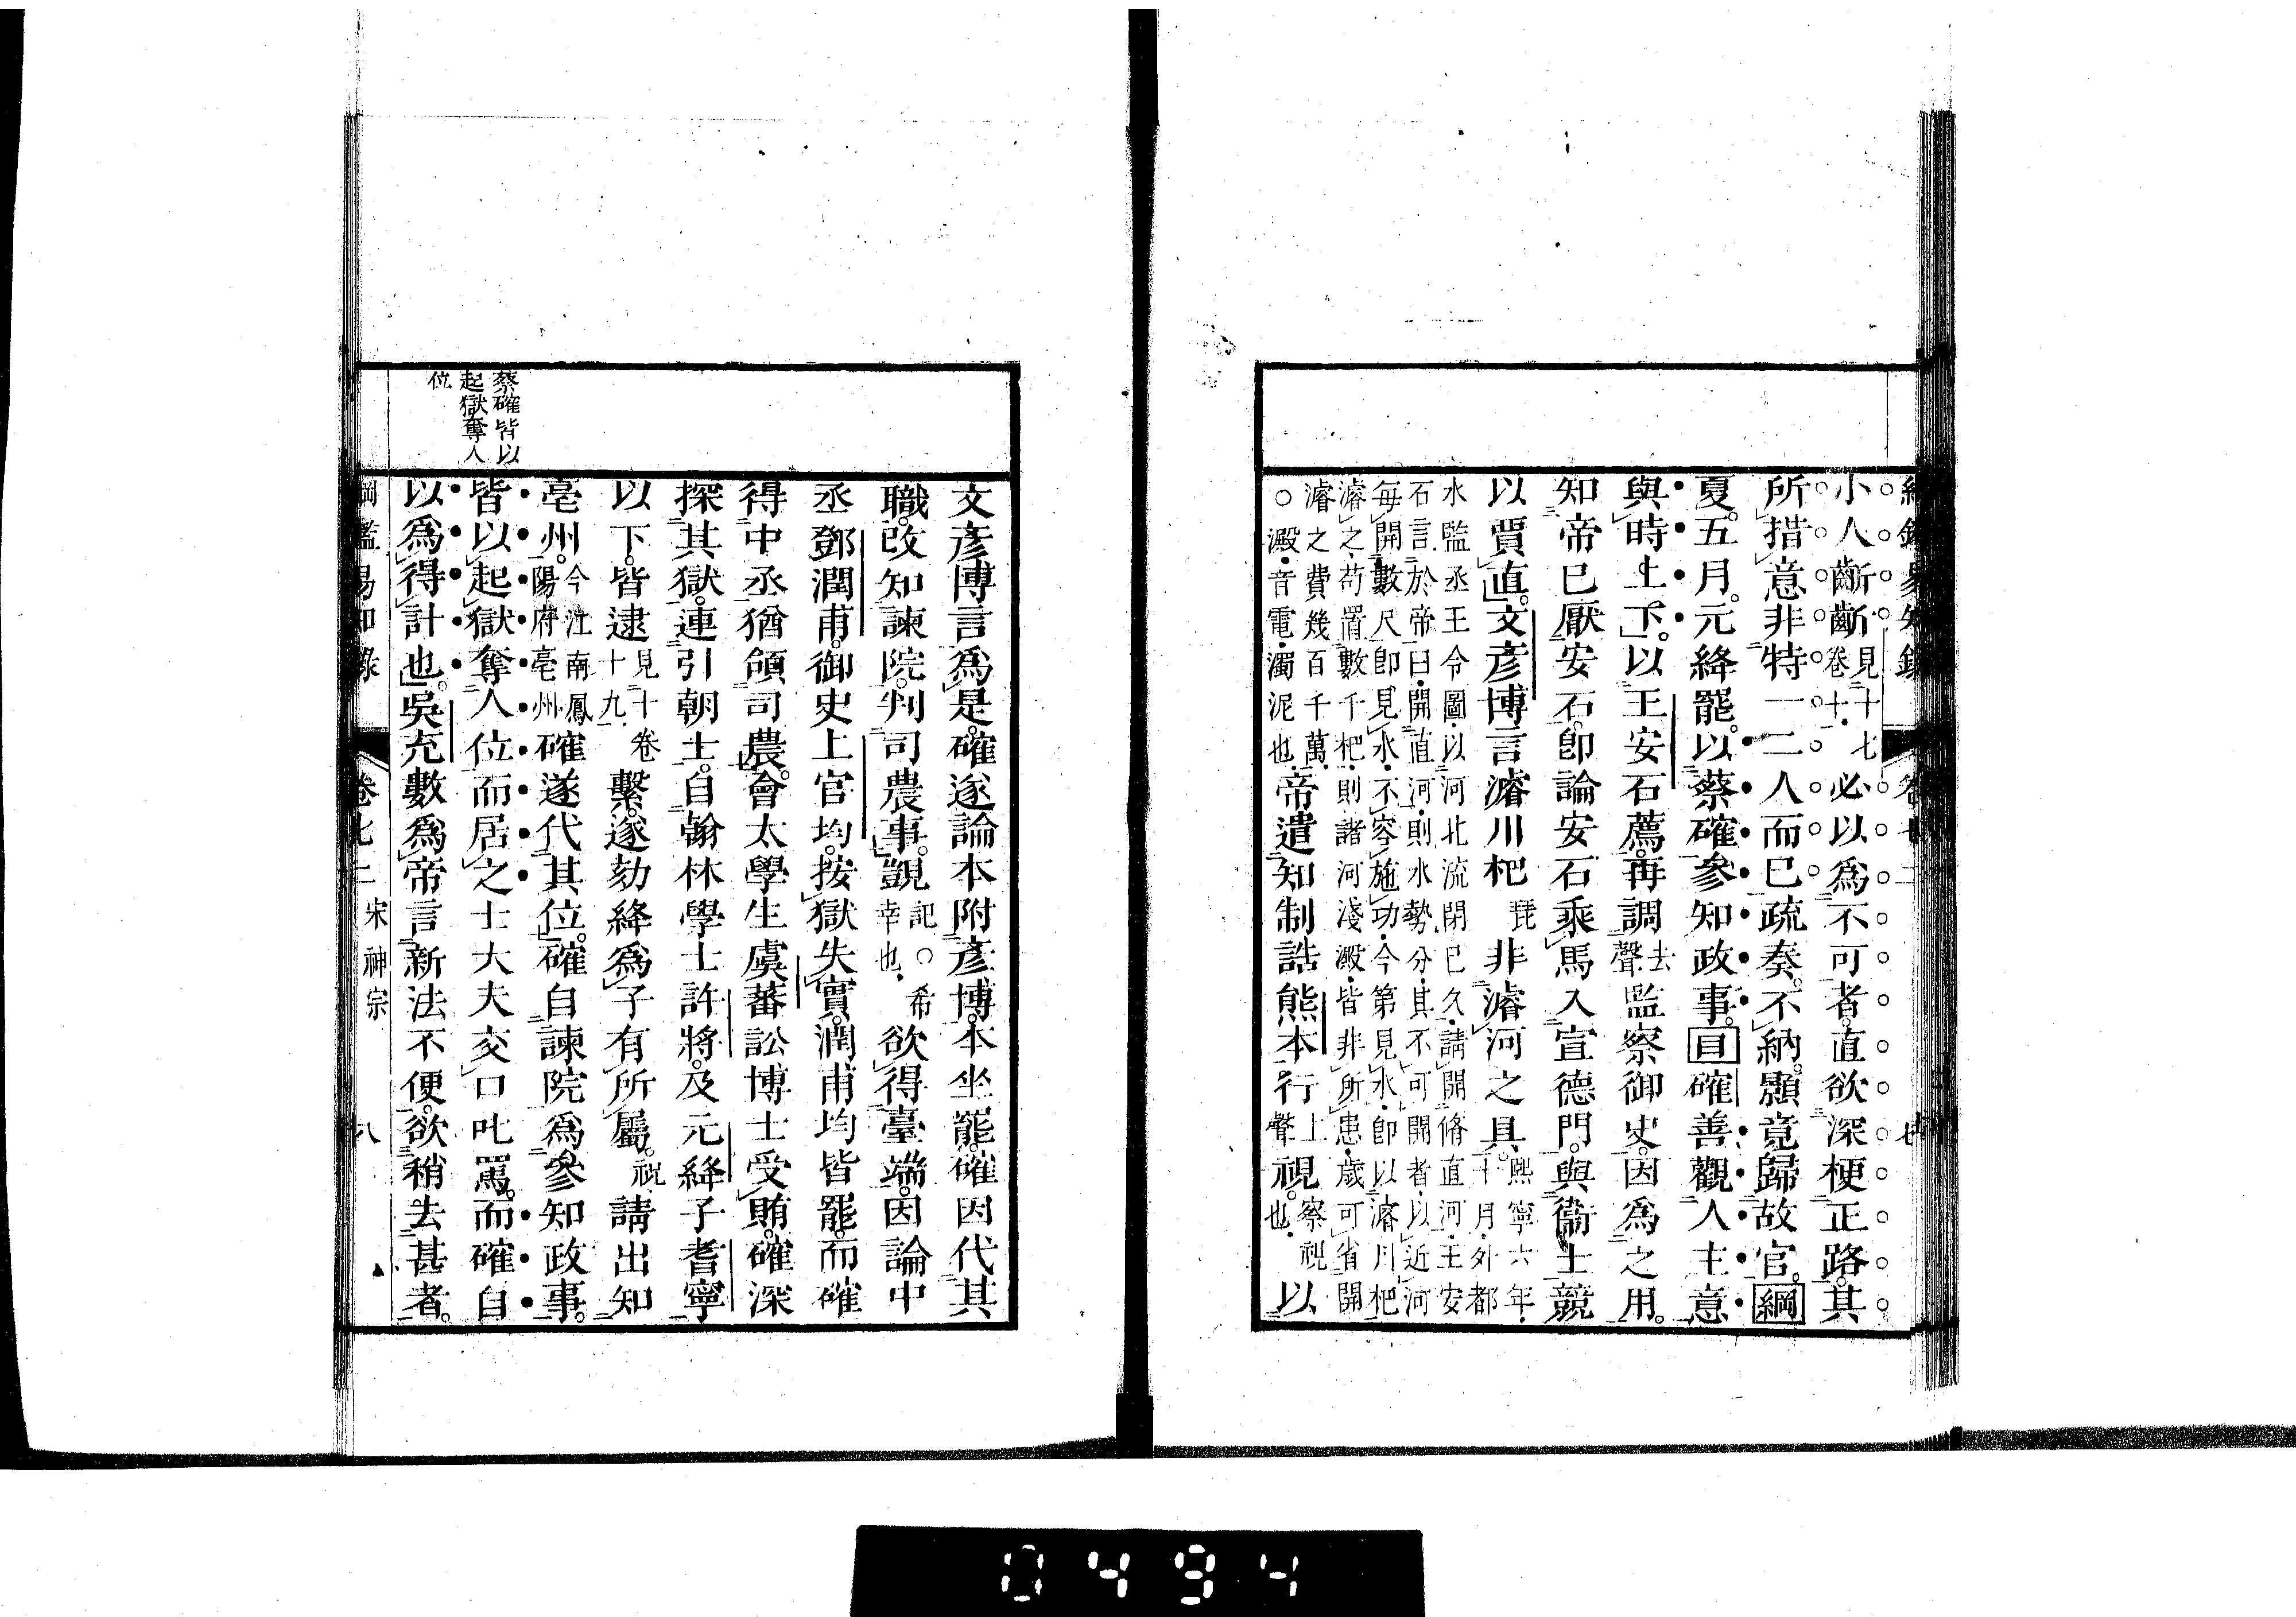 小人齗齗見十七卷十必以爲不可者直欲深梗正路其
所措意非特一二人而已疏奏不納顥竟歸故官綱
夏五月元絳罷以蔡確參知政事目確善觀人主意
與時上下以王安石薦再調去聲監察御史因爲之用
知帝已厭安石卽論安石乘馬入宣德門與衞士競
以賈直文彥博言濬川杷琵非濬河之具熙寧六年十月外都
水監丞王令圖以河北流閉已久請開脩直河王安
石言於帝曰開直河則水勢分其不可開者以近河
每開數尺卽見水不容施功今第見水卽以濬川杷
濬之苟置數千杷則諸河淺澱皆非所患歲可省開
濬之費幾百千萬
○澱音電濁泥也帝遣知制誥熊本行上聲視察視也以
文彥博言爲是確遂論本附彥博本坐罷確因代其
職改知諫院判司農事覬記○希幸也欲得臺端因論中
丞鄧潤甫御史上官均按獄失實潤甫均皆罷而確
得中丞猶領司農會太學生虞蕃訟博士受賄確深
探其獄連引朝士自翰林學士許將及元絳子耆寧
以下皆逮見十卷十九繫遂劾絳爲子有所屬祝請出知
亳州今江南鳳陽府亳州確遂代其位確自諫院爲參知政事
皆以起獄奪人位而居之士大夫交口叱罵而確自
以爲得計也吳充數爲帝言新法不便欲稍去甚者
蔡確皆以
起獄奪人
位
綱鑑易知錄 卷七二 宋神宗 八
0494